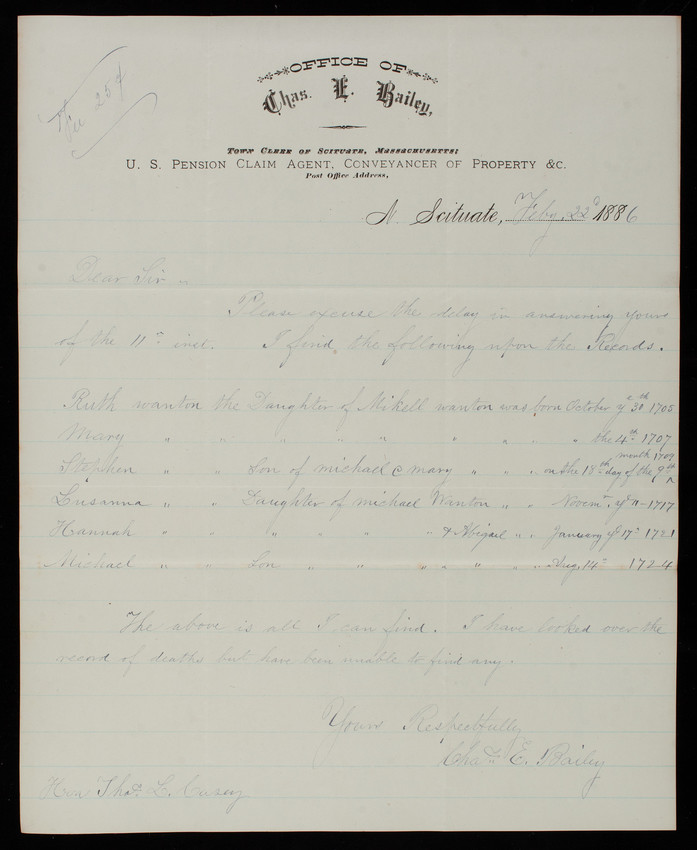 Fee 25¢
OFFICE OF
Chas. E. Bailey,
Town Clerk of Scituate, Massachusetts;
U. S. Pension Claim Agent, Conveyancer of Property &c.
Post Office Address,
N. Scituate, Feby. 22d 1886
Dear Sir
Please excuse the delay in answering yours
of the 11th inst. I find the following upon the Records.
Ruth wanton the Daughter of Mikell wanton was born October ye 30th 1705
Mary " " " " " " " " the 4th 1707
Stephen " " Son of michael & mary " " " on the 18th day of the 9th month 1709
Lusanna " " Daughter of michael Wanton " " Novemr. ye 1717
Hannah " " " " " " & Abigail " " January ye 17th 1721
Michael " " Son " " " " " " " Aug. 14th 1724
The above is all I can find. I have looked over the
record of deaths but have been unable to find any.
Yours Respectfully
Chas. E. Bailey
Hon Thos. L. Casey